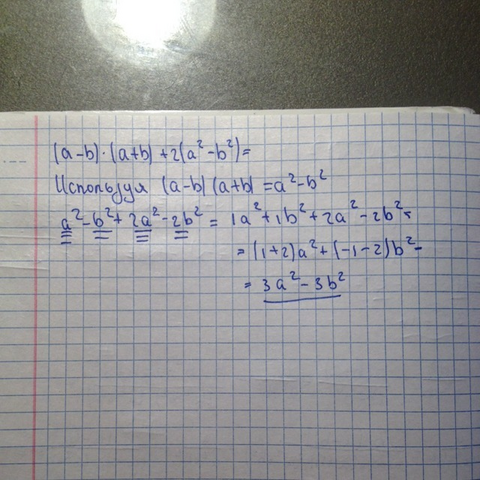 (a-b)·(a+b)+2(a²-b²)=
Используя (a-b)(a+b)=a²-b²
a²-b²+2a²-2b²=1a²+1b²+2a²-2b²=
=(1+2)a²+(-1-2)b²=
=3a²-3b²